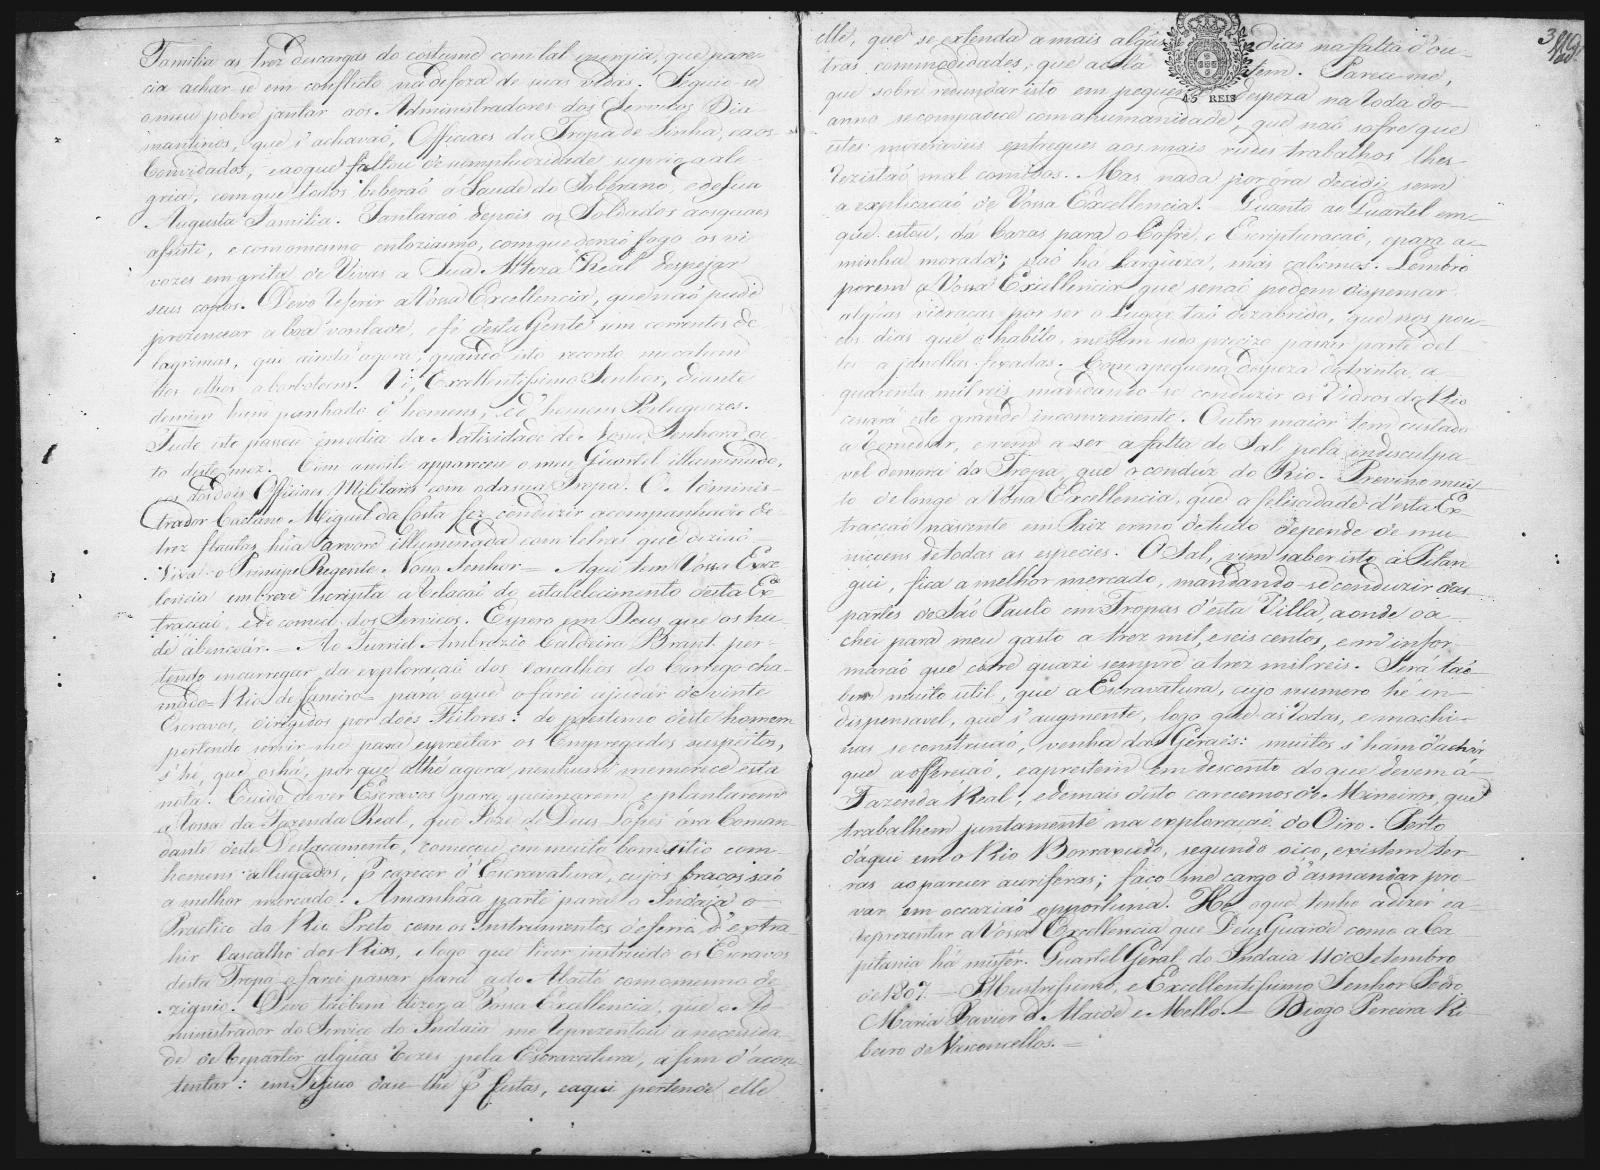 Familia as trez descargas do costume com tal energia, que pare-
cia achar-se em conflicto na defeza de suas vidas. Seguio-se
o meu pobre jantar aos Administradores dos Servicos Dia
mantinos, que s'achavaõ, Officiaes da Tropa de Linha, e aos
Convidados, e ao que faltou de sumptuozidade suprio a ale-
gria, com que todos beberaõ á Saude do Soberano, e de sua
Augusta Familia. Jantaraõ depois os Soldados aos quaes
assisti, e com o mesmo entoziasmo, com que deraõ fogo os vi
vozes em grita de Vivas a Sua Alteza Real despejar
seus copos. Devo referir a Vossa Excellencia, que naõ pude
prezencear a boa vontade, e fé desta Gente sem correntes de
lagrimas, que ainda agora, quando isto recordo me cahem
dos olhos a borbotoens. Vi, Excellentissimo Senhor, diante
de mim hum punhado d'homens, e d'homens Portuguezes.
Tudo isto passou em o dia da Natividade de Nossa Senhora oi-
to deste mez. Com a noite appareceo o meu Quartel illuminado,
os dos dois Officiaes Militares com o da sua Tropa. O Adminis-
trador Caetano Miguel da Costa fez conduzir acompanhada de
trez flautas, hũa arvore illuminada com letras que diziaõ-
Viva o Principe Regente Nosso Senhor = Aqui tem Vossa Exce
lencia em breve escripta a relacaõ do estabelecimento desta Ex
tracçaõ, e do começo dos Servicos. Espero em Deus que os ha
de abençoár. = Ao Furriel Ambrozio Caldeira Brant per-
tendo encarregar da exploraçaõ dos cascalhos do Corrego cha-
mado = Rio de Janeiro = para o que o farei ajudár de vinte
Escravos, dirigidos por dois Feitores: do prestimo deste homem
pertendo servir-me para espreitar os Empregados suspeitos,
s'hé, que os há, por que athé agora nenhum me merece esta
nota. Cuido de ver Escravos para queimarem e plantarem
a Rossa da Fazenda Real, que Joze de Deus Lopes ora Coman-
dante deste Destacamento, começou em muito bom sitio com
homens allugados, p.r carecer d'Escravatura, cujos braços saõ
a melhor mercado. Amanhãa parte para o Indaiá o
Practico do Rio Preto, com os Instrumentos de ferro d'extra
hir Cascalho dos Rios, e logo que tiver instruido os Escravos
desta Tropa o farei passar para a do Abaeté com o mesmo de
zignio. Devo tãobem dizer a Vossa Excellencia, que o Ad
ministrador do Servico do Indaiá me reprezentou a necessida-
de de repartir algũas rezes pela Escravatura, a fim d'acon-
tentar: em Tejuco dase-lhe p.r festas, e aqui pertende elle
elle, que se extenda a mais algũs dias na falta d'ou-
tras commodidades, que acolá tem. Parece-me,
que sobre redundar isto em pequena despeza na roda do
anno se compadece com a humanidade, que naõ sofre que
estes mizeraveis entregues aos mais rudes trabalhos lhes
rezistaõ mal comidos. Mas nada por óra decidi sem
a explicaçaõ de Vossa Excellencia. Quanto ao Quartel em
que estou, da Cazas para o Cofre, e Escripturaçaõ, e para a
minha morada; naõ há largueza, mas cabemos. Lembro
porem a Vossa Excellencia que se naõ podem dispensar
algũas vidraças por ser o lugar taõ dezabrido, que nos pou-
cos dias que o habito, me tem sido precizo passar parte del-
les a janellas fexadas. Com a pequena despeza de trinta, a
quarenta mil reis mandando-se conduzir os Vidros do Rio
cessará este grande inconveniente. Outro maior tem custado
a remediar, e vem a ser a falta de Sal pela indisculpa-
vel demora da Tropa, que o conduz do Rio. Previno mui
to de longe a Vossa Excellencia, que a feliscidade d'esta Ex
tracçaõ nascente em Paiz ermo de tudo depende de mu
niçoens de todas as especies. O Sal, vem saber isto á Pitan
gui, fica a melhor mercado, mandando-se conduzir das
partes de Saõ Paulo em Tropas d'esta Villa, aonde o a-
chei para meu gasto a trez mil, e seis centos, e m'infor
maraõ que corre quazi sempre a trez mil reis. Será tão
bem muito util, que a Escravatura, cujo numero hé in-
dispensavel, que s'augmente, logo que as rodas, e machi-
nas se construaõ, venha das Geraes: muitos s'haõ d'achár
que a offereçaõ, e aprestem em desconto do que devem á
Fazenda Real, e de mais disto carecemos de Mineiros, que
trabalhem juntamente na exploraçaõ do Oiro. Perto
d'aqui em o Rio Borraxudo, segundo oiço, existem ter-
ras ao parecer auriferas; faço-me cargo d'as mandar pro-
var em occaziaõ opportuna. He o que tenho a dizer e a
reprezentar a Vossa Excellencia que Deus Guarde como a Ca
pitania há mister. Quartel Geral do Indaia 11 de Setembro
de 1807. = Illustrissimo, e Excellentissimo Senhor Pedro
Maria Xavier d'Ataide e Mello. = Diogo Pereira Ri
beiro de Vasconcellos. =
45 REIS